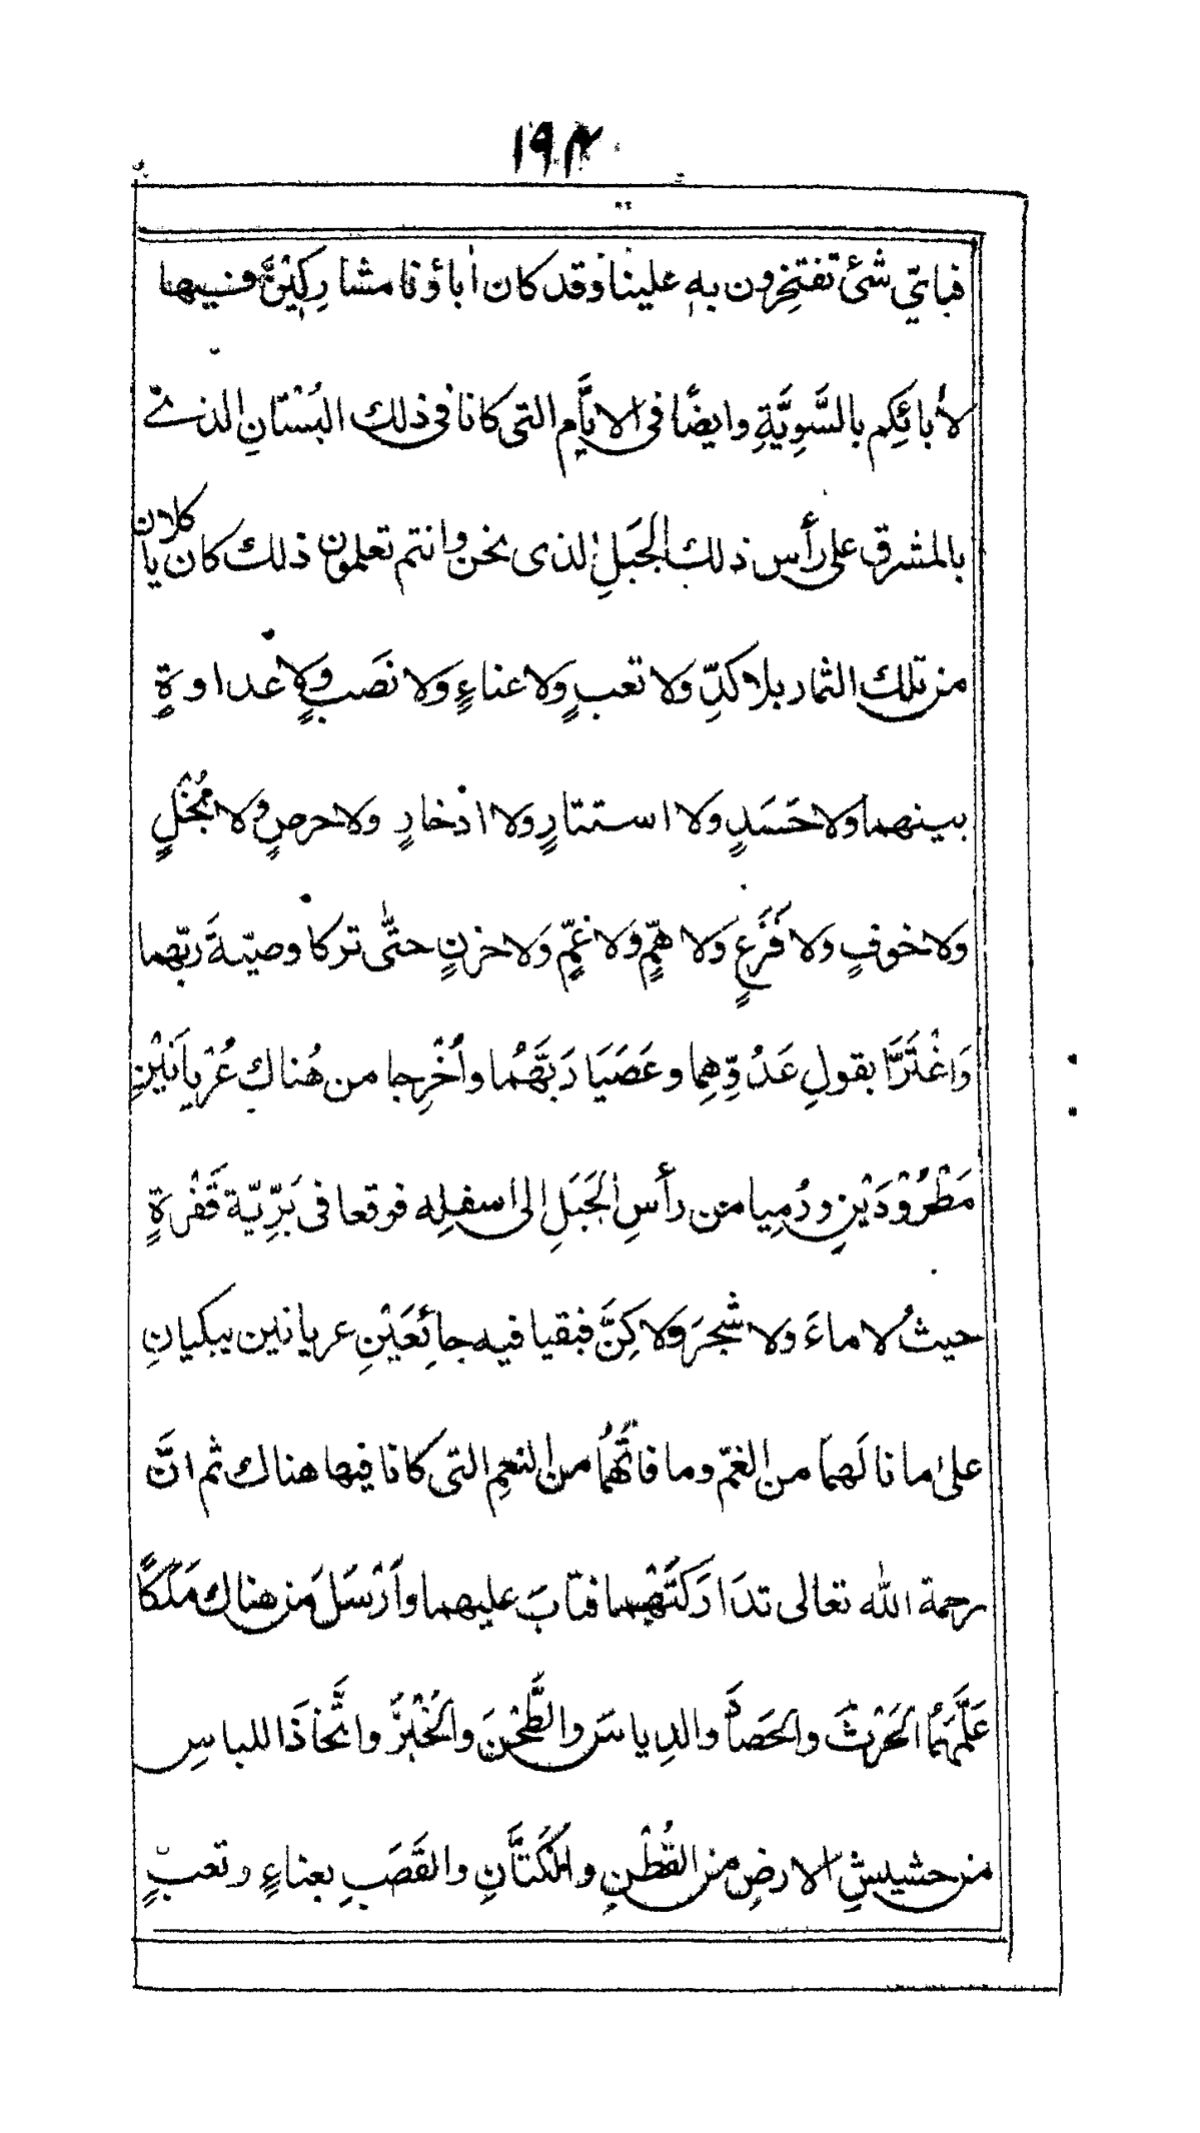 ١٩٢
فباتي شئ تفتخرون به علينا وقد كان اٰباؤنا مشارِكِيْنَ فيها
لأبائِكم بالسَّوِيَّةِ وايضًا فى الايَّام التى كانا فى ذلك البُسْتانِ الذى
بالمشرق على رأس ذلك الجَبَلِ الذى نحن وانتم تعلمون ذلك كان يا كلان
من تلك الثمار بلا كدِّ ولا تعبٍ ولا عناءٍ ولا نصَبٍ ولا عداوةٍ
بينهما ولا حَسَدٍ ولا استتارٍ ولا ادخارٍ ولا حرصٍ ولا بُخْلٍ
ولا خوفٍ ولا فَزَعٍ ولا همٍّ ولا غمٍّ ولا حزنٍ حتّٰى تركا وصيّةَ ربّهما
وَاغْتَرَّا بقولِ عَدُوِّهِما وعَصَيَا رَبَّهُما وأُخْرِجا من هُناك عُرْيانَيْنِ
مَطْرُوْدَيْنِ ورُمِيا من رأسِ الجَبَلِ الى اسفلِه فوقعا فى بَرِّيّة قَفْرَةٍ
حيثُ لا ماءَ ولا شجرَ ولا كِنَّ فبقيا فيه جائِعَيْنِ عريانين يبكيانِ
علىٰ ما نالَهما من الغمّ وما فاتَهُما من النعِم التى كانا فيها هناك ثم انَّ
رحمة الله تعالى تدَارَكَتْهما فتابَ عليهما وأَرْسَلَ من هناك مَلَكًا
عَلَّمَهُما الحَرْثَ والحَصادَ والدِياسَ والطَّحْنَ والخُبْزَ واتَّخاذَا اللباسِ
من حشيشِ الارضِ من القُطْنِ والكَتَّانِ والقَصَبِ بعناءٍ وتعبٍ